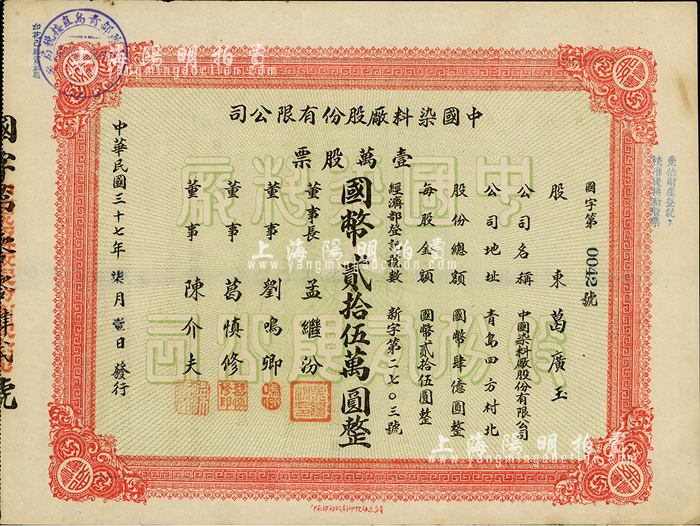 中國染料廠股份有限公司
壹萬股票
國字第0042號
股東 葛廣玉
公司名稱 中國染料廠股份有限公司
公司地址 青島四方村北
股份總額 國幣肆億圓整
每股金額 國幣貳拾伍圓整
經濟部登記號數 新字第二七〇三號
國幣貳拾伍萬圓整
董事長 孟繼汾
董事 劉鳴卿
董事 葛慎修
董事 陳介夫
中華民國三十七年柒月壹日發行
重估財產登記
核准後換給股票
上海陽明拍賣
www.yangmingauction.com